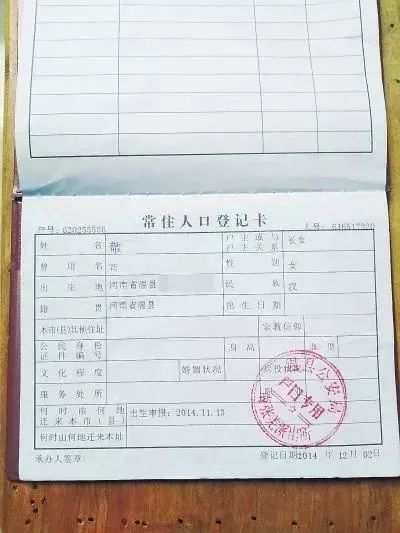 常住人口登记卡
户号: 620255536
姓名 敬 户主或与户主关系 长女
曾用名 苟 性别 女
出生地 河南省温县 民族 汉
籍贯 河南省温县 出生日期
本市(县)其他住址 宗教信仰
公民身份证件编号 身高 血型
文化程度 婚姻状况 兵役状况
服务处所
何时由何地迁来本市(县) 出生申报: 2014.11.13
何时由何地迁来本址
承办人签章: 登记日期: 2014 年 12月 02日
温县公安局
户口专用